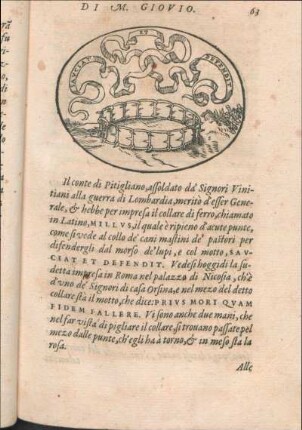 DI M. GIOVIO. 63
SAUCIAT ET DEFENDIT
Il conte di Pitigliano, assoldato da' Signori Vini-
tiani alla guerra di Lombardia, meritò d'esser Gene-
rale, & hebbe per impresa il collare di ferro, chiamato
in Latino, MILLVS, il quale è ripieno d'acute punte,
come si vede al collo de' cani mastini de' pastori per
difendergli dal morso de' lupi, e col motto, SAV-
CIAT ET DEFENDIT. Vedesi hoggidi la su-
detta impresa in Roma nel palazzo di Nicosia, ch'è
d'uno de' Signori di casa Orsina, e nel mezo del detto
collare stà il motto, che dice: PRIVS MORI QVAM
FIDEM FALLERE. Vi sono anche due mani, che
nel far vista di pigliare il collare, si trouano passate pel
mezo dalle punte, ch'egli ha à torno, & in mezo stà la
rosa.
Alle